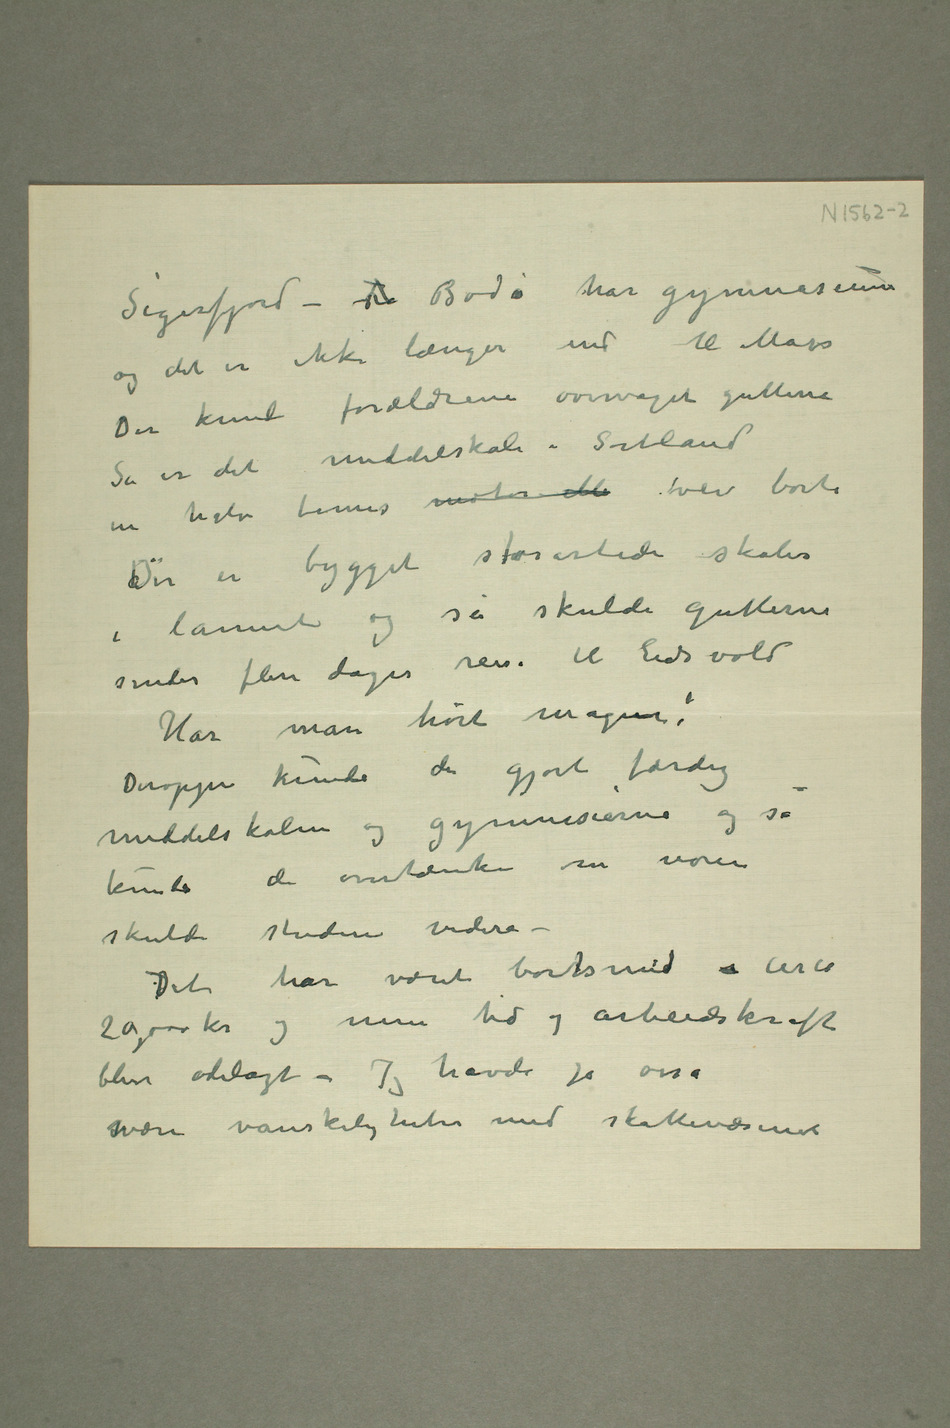 N1562-2
Sigerfjord – Bodø har gymnasium
og det er ikke længer end til Moss
Der kunde forældrene overvaget gutterne
Så er det middelskole i Sortland
en halv times motor eller vei borte
Der er bygget storartede skoler
i lannet og så skulde gutterne
sendes flere dages reise til Eidsvold
Har man hørt magen!
Deroppe kunde de gjort færdig
middelskolen og gymnasierne og så
kunde de overtænke om noen
skulde studere videre –
Det har været bortsmid circa
20,000 kr og min tid og arbeidskraft
blev ødelagt – Jeg havde jo osså
svære vanskeligheter med skattevæsenet